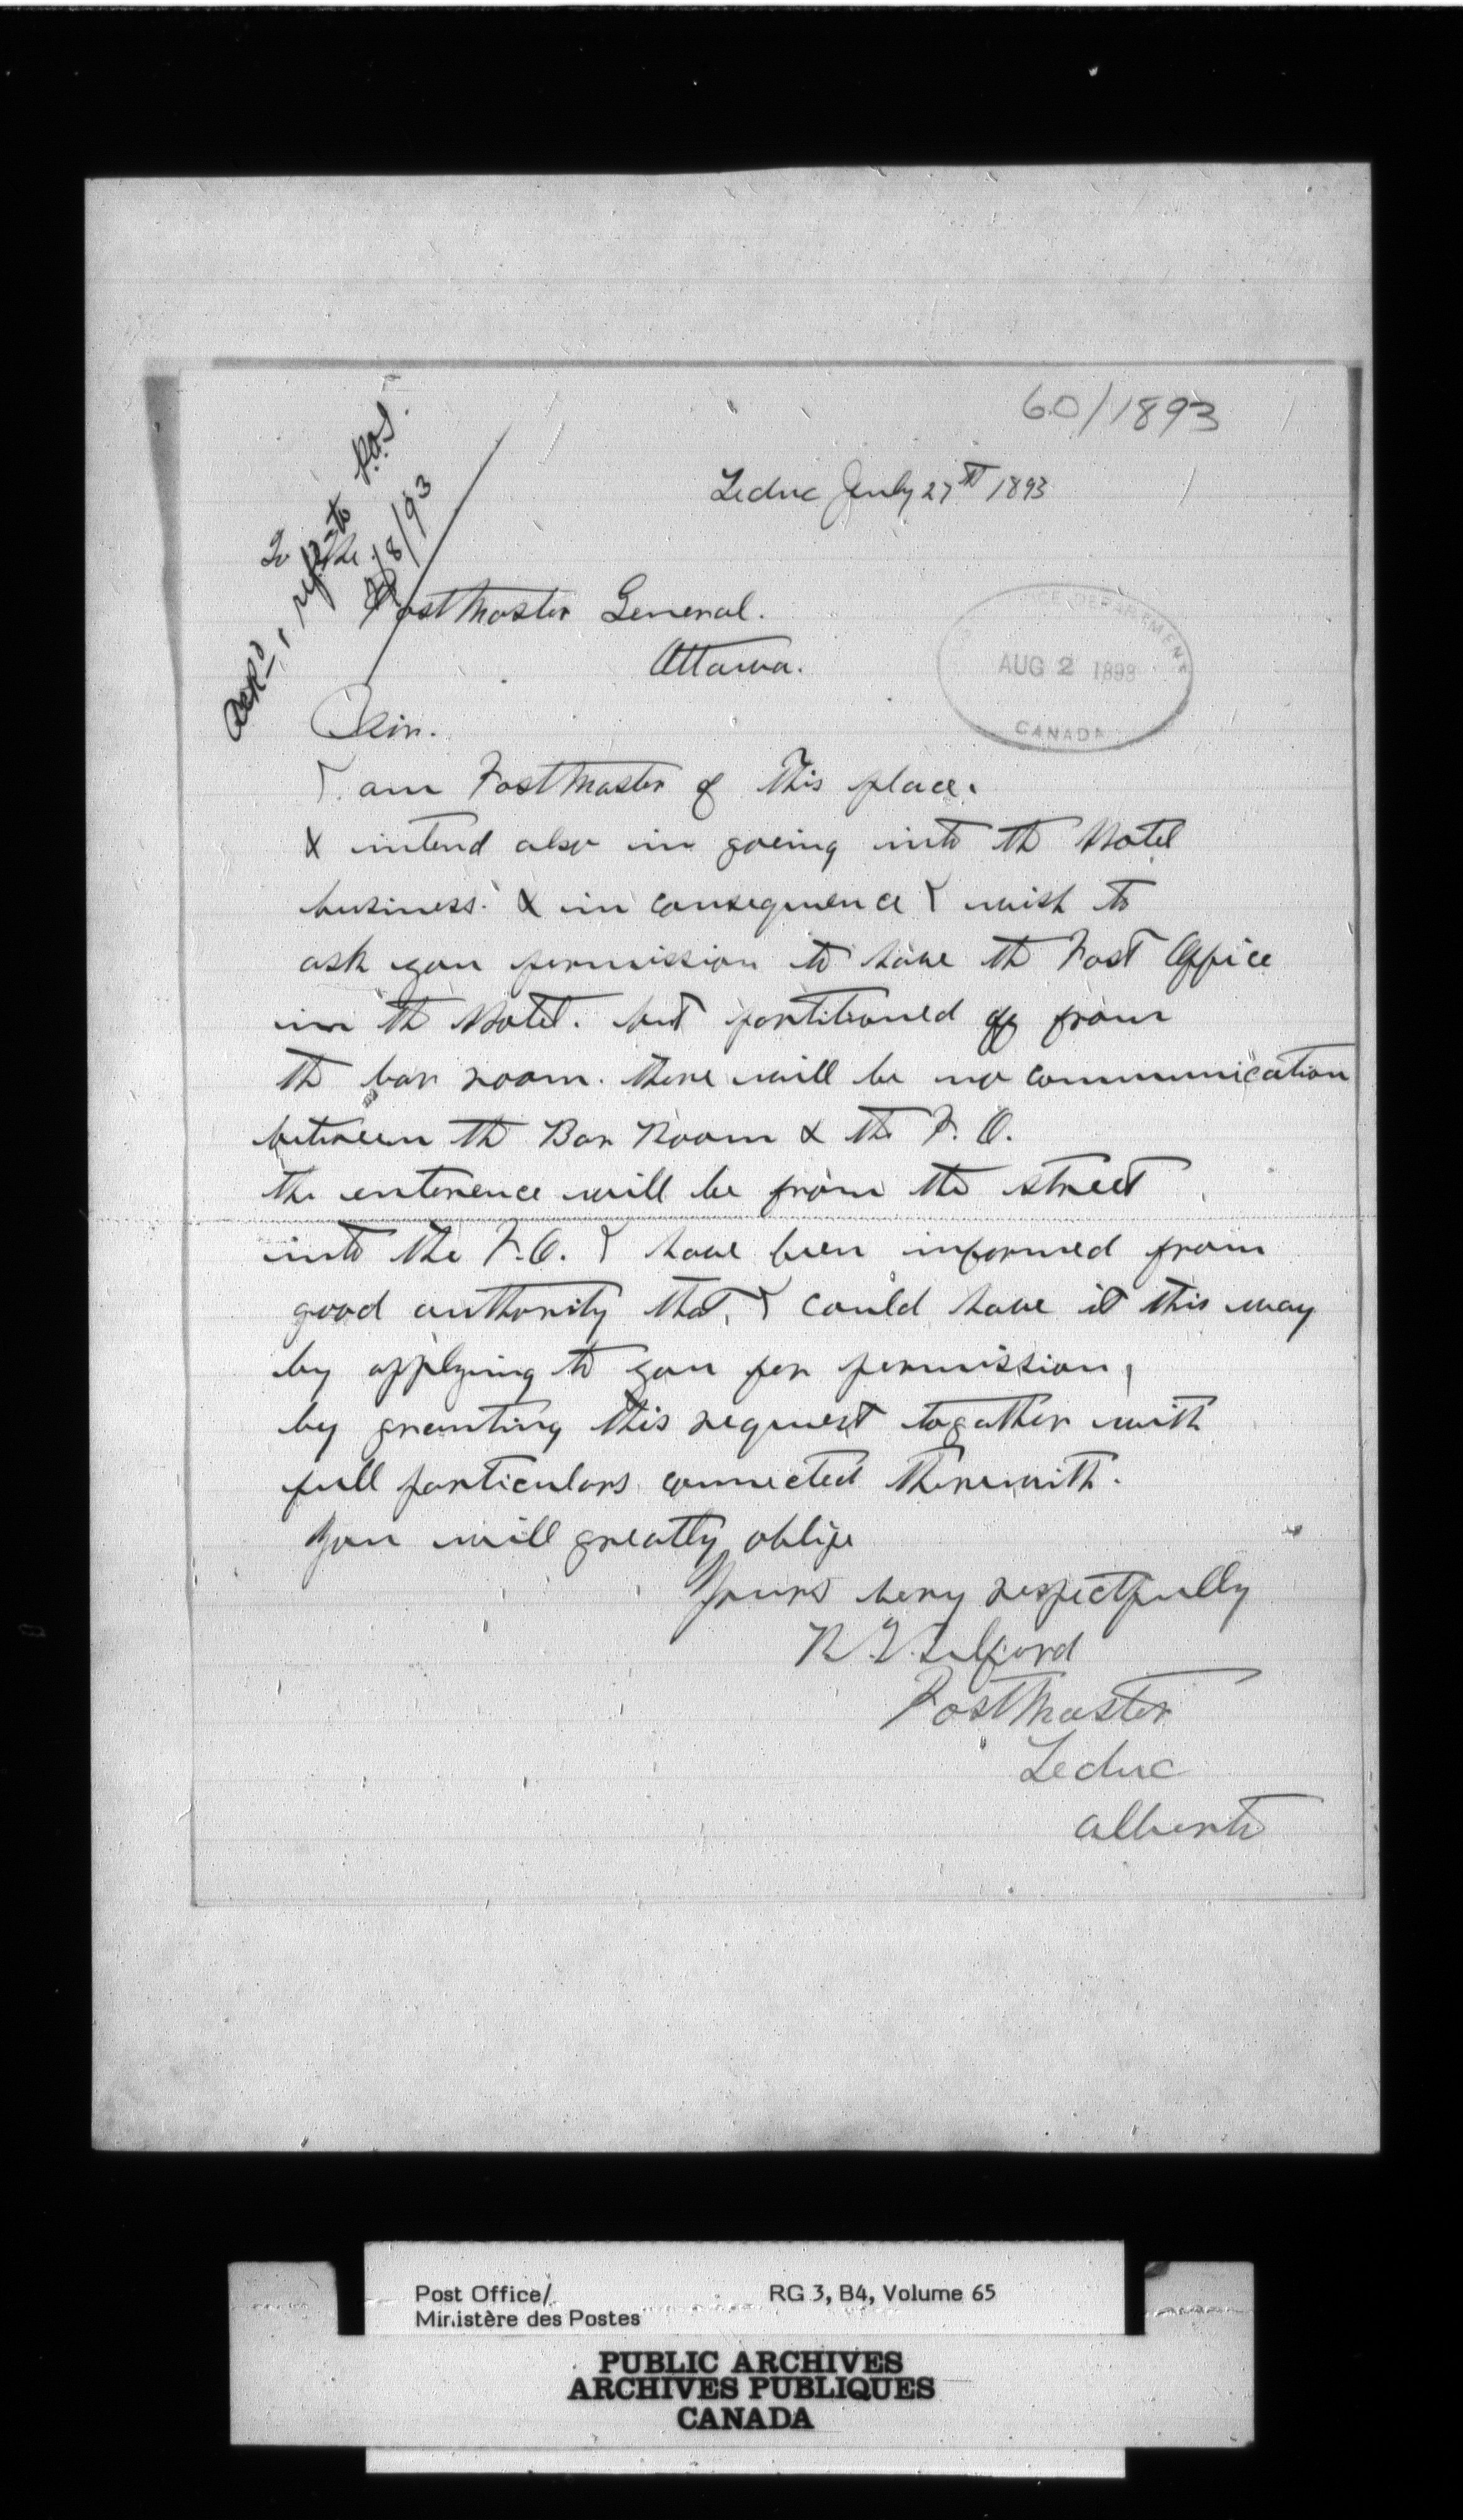 60/1893
Leduc July 27th 1893
Ackd, refd to P.O.I.
/8/93
To the
Post Master General.
Ottawa.
OFFICE DEPARTMENT
AUG 2 1893
CANADA
Sir.
I am Post Master of This place.
& intend also in going into the Hotel
business. & in consequence I wish to
ask you permission to have the Post Office
in the Hotel. but partitioned off from
the bar room. there will be no communication
between the Bar Room & the P. O.
the enterence will be from the street
into the P.O. I have been informed from
good authority that, I could have it this way
by applying to you for permission,
by granting this request togather with
full particulars connected therewith.
You will greatly oblige
Yours very respectfully
R. T. Telford
Post Master
Leduc
Alberta
Post Office/
Ministère des Postes
RG 3, B4, Volume 65
PUBLIC ARCHIVES
ARCHIVES PUBLIQUES
CANADA